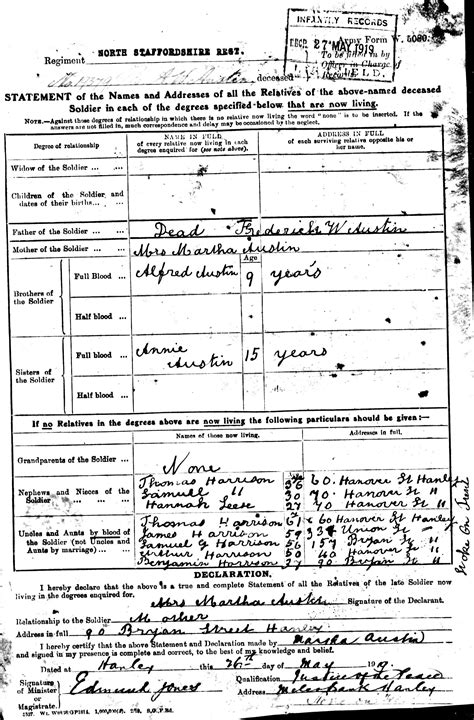 INFANTRY RECORDS
27 MAY 1919
Army Form W. 5080.
NORTH STAFFORDSHIRE REGT.
Regiment
Austin deceased
STATEMENT of the Names and Addresses of all the Relatives of the above-named deceased
Soldier in each of the degrees specified below that are now living.
NOTE.—Against those degrees of relationship in which there is no relative now living the word "none" is to be inserted. If the
answers are not filled in, much correspondence and delay may be occasioned by the neglect.
Degree of relationship
NAME IN FULL
of every relative now living in each
degree enquired for (see note above).
ADDRESS IN FULL
of each surviving relative opposite his or
her name.
Widow of the Soldier ... ...
Children of the Soldier and
dates of their births... ...
Father of the Soldier ... ... Dead Frederick W Austin
Mother of the Soldier ... ... Mrs Martha Austin
Age
Brothers of
the Soldier
Full Blood ... Alfred Austin 9 years
Half blood ...
Sisters of
the Soldier
Full blood ... Annie
Austin 15 years
Half blood ...
If no Relatives in the degrees above are now living the following particulars should be given:—
Names of those now living.
Addresses in full.
Grandparents of the Soldier ...
None
Nephews and Nieces of the
Soldier
Thomas Harrison 36 60. Hanover St Hanley
Samuel " 30 70. Hanover St "
Hannah Leese 27 70 Hanover St "
Uncles and Aunts by blood of
the Soldier (not Uncles and
Aunts by marriage) ...
Thomas Harrison 61 60 Hanover St Hanley
James Harrison 59 Union St "
Samuel G Harrison 56 157 Bryan St "
Arthur Harrison 50 40 Hanover St "
Benjamin Harrison 27 90 Bryan St "
Stoke on Trent
DECLARATION.
I hereby declare that the above is a true and complete Statement of all the Relatives of the late Soldier now
living in the degrees enquired for.
Mrs Martha Austin Signature of the Declarant.
Relationship to the Soldier Mother
Address in full 90 Bryan Street Hanley
I hereby certify that the above Statement and Declaration made by Martha Austin
and signed in my presence is complete and correct, to the best of my knowledge and belief.
Dated at Hanley this 26th day of May 191
Signature
of Minister
or
Magistrate.
Edmund Jones
Qualification Justice of the Peace
Address Hanley